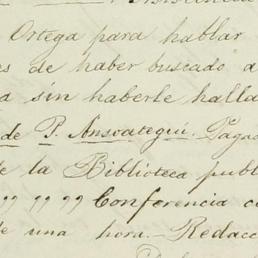 Ortega para hablar
es de haber buscado a
a sin haberle halla
de P. Anscategui. Paga
de la Biblioteca publ
99 99 99 99 Conferencia co
de una hora. Redacc